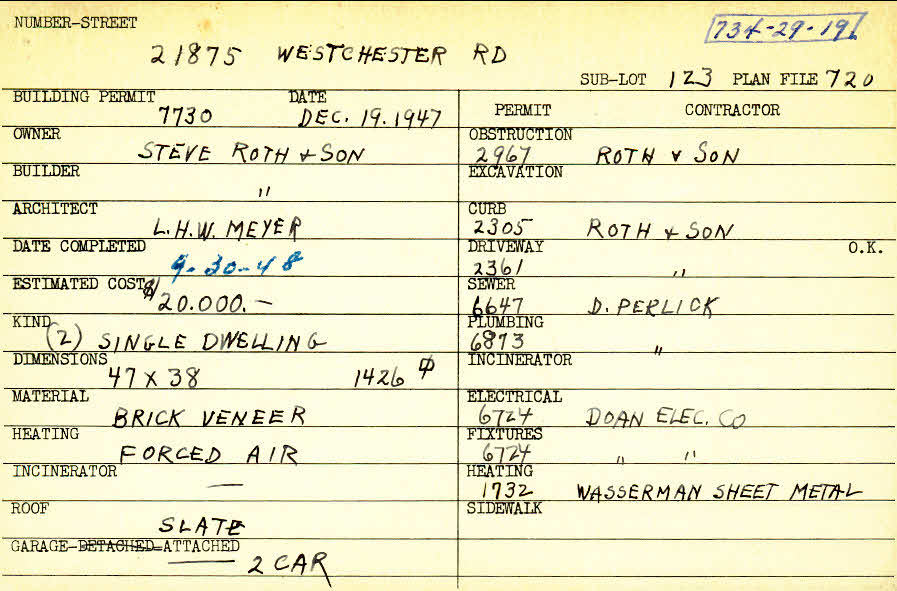 NUMBER-STREET
734-29-19
21875 WESTCHESTER RD
SUB-LOT 123 PLAN FILE 720
BUILDING PERMIT DATE
7730 DEC. 19. 1947
OWNER
STEVE ROTH + SON
BUILDER
"
ARCHITECT
L.H.W. MEYER
DATE COMPLETED
9-30-48
ESTIMATED COST
$20.000.—
KIND
(2) SINGLE DWELLING
DIMENSIONS
47 X 38 1426 ⌀
MATERIAL
BRICK VENEER
HEATING
FORCED AIR
INCINERATOR
—
ROOF
SLATE
GARAGE-DETACHED-ATTACHED
2 CAR
PERMIT CONTRACTOR
OBSTRUCTION
2967 ROTH + SON
EXCAVATION
CURB
2305 ROTH + SON
DRIVEWAY O.K.
2361 "
SEWER
6647 D. PERLICK
PLUMBING
6873 "
INCINERATOR
ELECTRICAL
6724 DOAN ELEC. CO
FIXTURES
6724 " "
HEATING
1732 WASSERMAN SHEET METAL
SIDEWALK